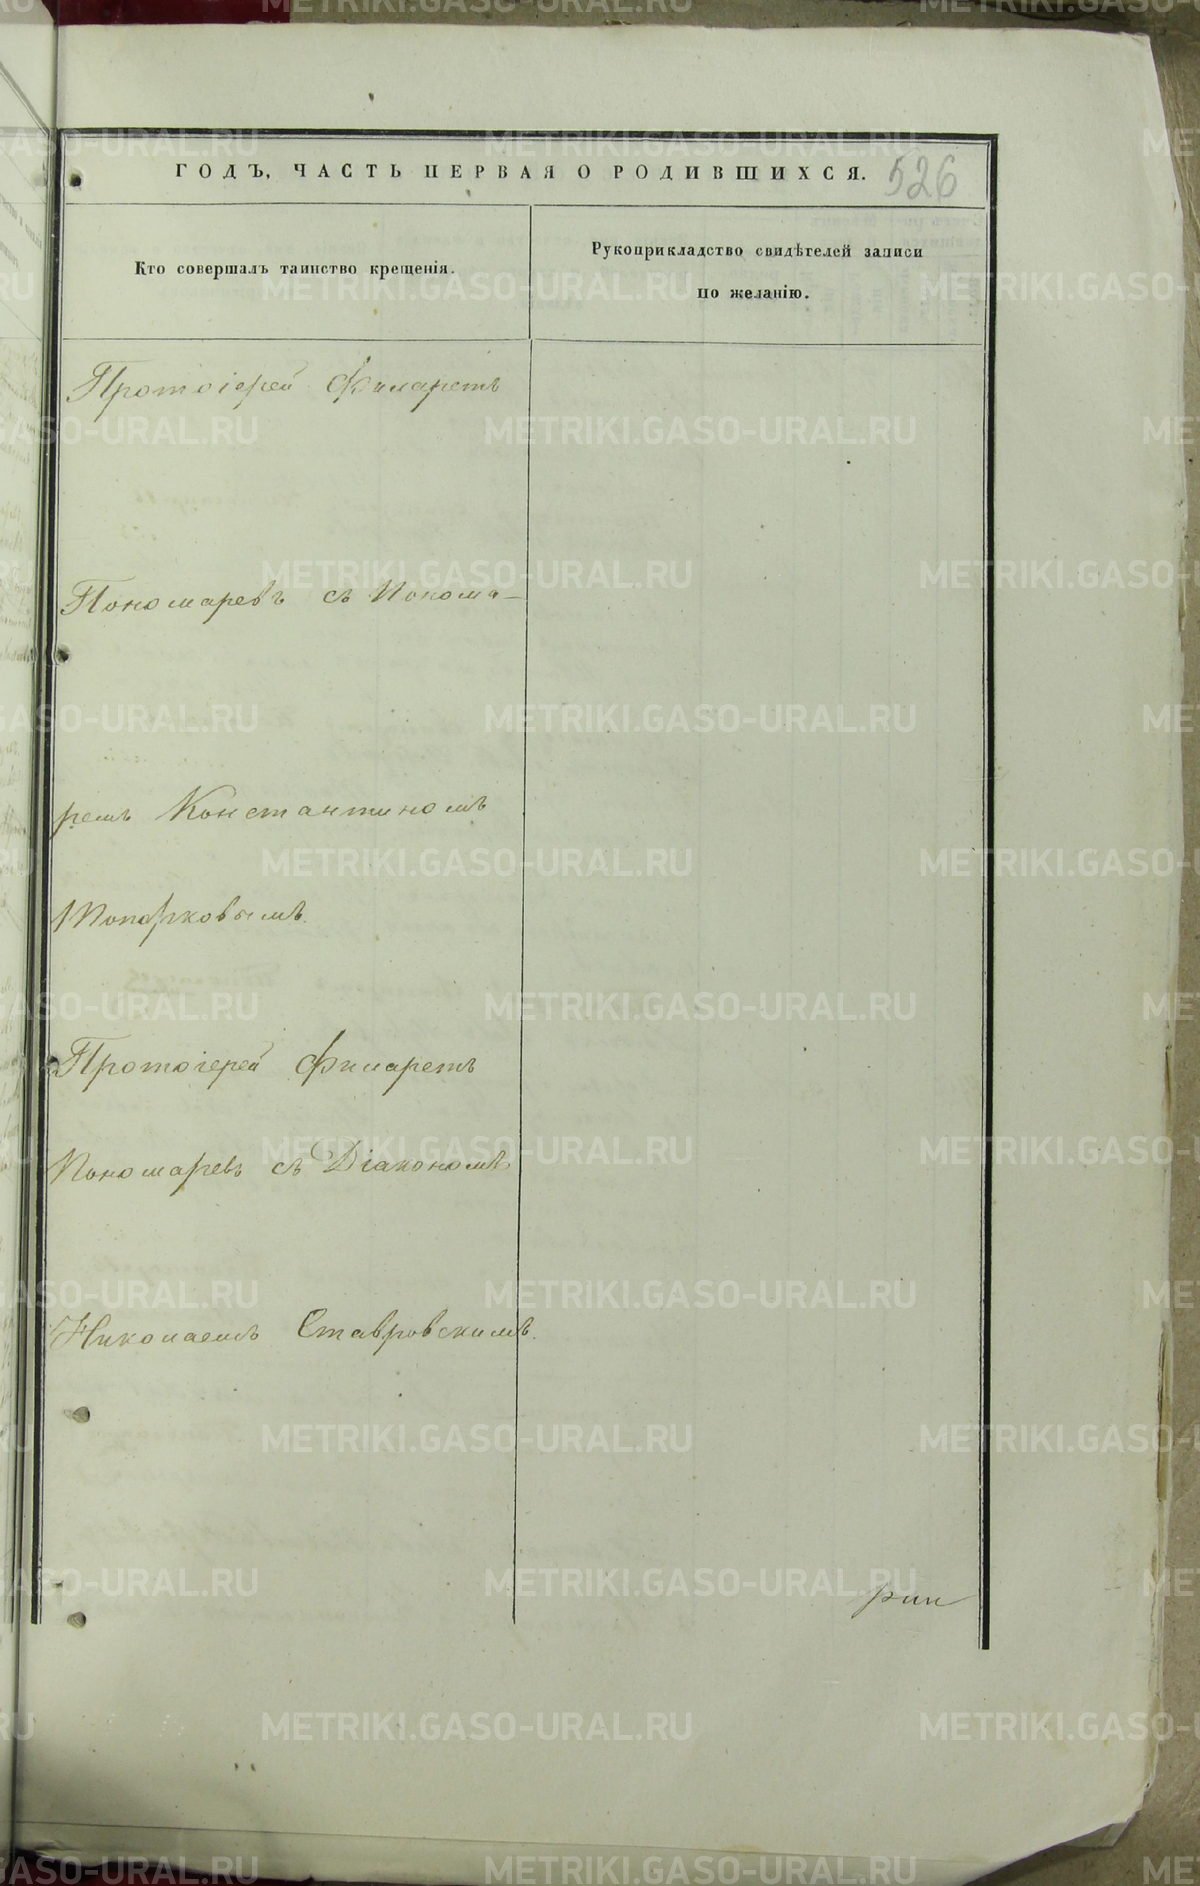 ГОДЪ, ЧАСТЬ ПЕРВАЯ О РОДИВШИХСЯ. 526
Кто совершалъ таинство крещенія.
Рукоприкладство свидѣтелей записи
по желанію.
Протоіерей Филаретъ
Пономаревъ съ Понома-
ремъ Константиномъ
Топорковымъ.
Протоіерей Филаретъ
Пономаревъ съ Діакономъ
Николаемъ Ставровскимъ.
METRIKI.GASO-URAL.RU